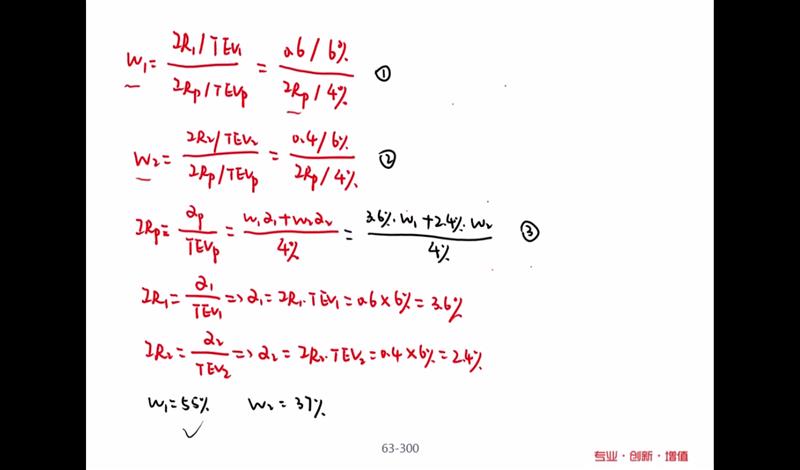 W₁ = (IR₁/TEV₁)/(IRp/TEVp) = (0.6/6%)/(IRp/4%) ①
W₂ = (IR₂/TEV₂)/(IRp/TEVp) = (0.4/6%)/(IRp/4%) ②
IRp = αp/TEVp = (W₁α₁+W₂α₂)/4% = (3.6%·W₁+2.4%·W₂)/4% ③
IR₁ = α₁/TEV₁ => α₁ = IR₁·TEV₁ = 0.6×6% = 3.6%
IR₂ = α₂/TEV₂ => α₂ = IR₂·TEV₂ = 0.4×6% = 2.4%
W₁=55% W₂=37%
63-300
专业·创新·增值